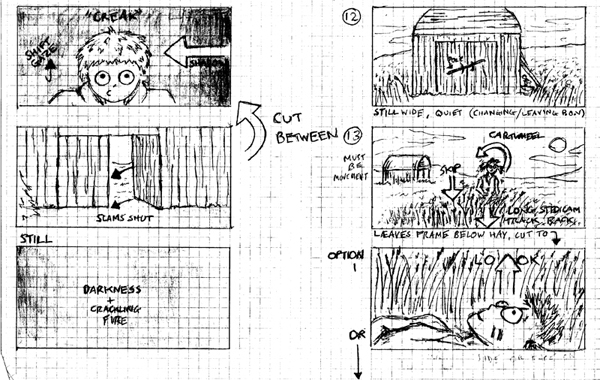 "CREAK"
SHIFT
GAZE
SHADOW
CUT
BETWEEN
SLAMS SHUT
STILL
DARKNESS
+
CRACKLING
FIRE
12
STILL WIDE, QUIET (CHANGING/LEAVING BOY)
13
MUST
BE
MOVEMENT
CARTWHEEL
SKIP
LONG STEDICAM
TRACK BACK.
LEAVES FRAME BELOW HAY, CUT TO
OPTION
1
LOOK
OR